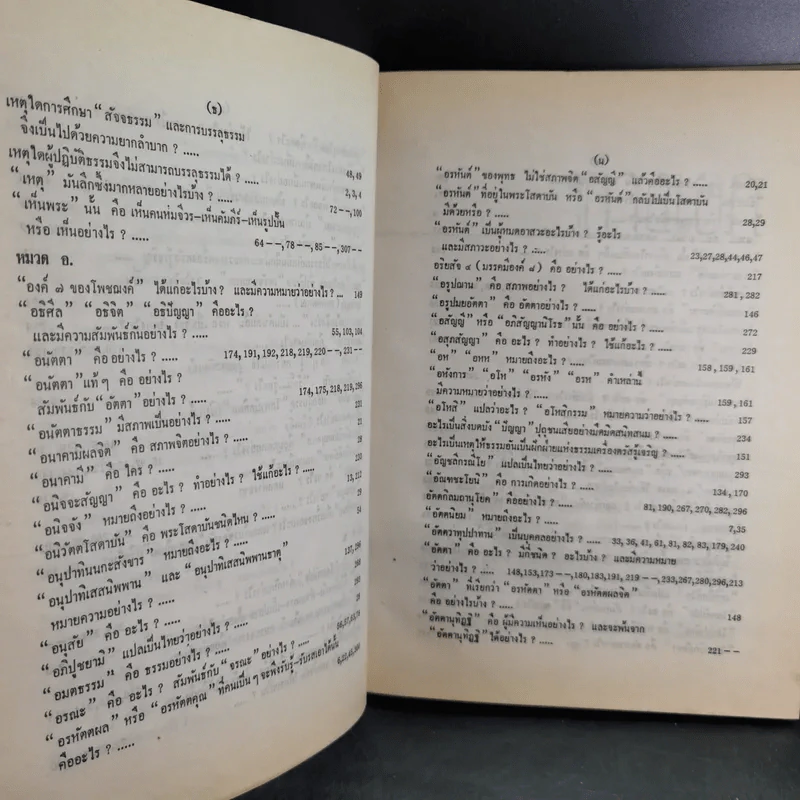 (ธ)
เหตุใดการศึกษา “สัจจธรรม” และการบรรลุธรรม
จึงเป็นไปด้วยความยากลำบาก ? .....
48,49
เหตุใดผู้ปฏิบัติธรรมจึงไม่สามารถบรรลธรรมได้ ? .....
2,3,4
“เหตุ” มันลึกซึ้งมากหลายอย่างไรบ้าง ? .....
72--,100
“เห็นพระ” นั้น คือ เห็นคนห่มจีวร-เห็นคัมภีร์-เห็นรูปปั้น
หรือ เห็นอย่างไร ? .....
64--,78--,85--,307--
หมวด อ.
“องค์ ๗ ของโพชฌงค์” ได้แก่อะไรบ้าง? และมีความหมายว่าอย่างไร? ... 149
“อธิศีล” “อธิจิต” “อธิปัญญา” คืออะไร ?
และมีความสัมพันธ์กันอย่างไร ? .....
55,103,104
“อนัตตา” คือ อย่างไร ? .....
174,191,192,218,219,220--,231--
“อนัตตา” แท้ๆ คือ อย่างไร ?
สัมพันธ์กับ “อัตตา” อย่างไร ? .....
174,175,218,219,298
“อนัตตาธรรม” มีสภาพเป็นอย่างไร ? .....
“อนาคามิผลจิต” คือ สภาพจิตอย่างไร ? .....
“อนาคามี” คือ ใคร ? .....
“อนิจจะสัญญา” คือ อะไร ? ทำอย่างไร ? ใช้แก้อะไร ? .....
13,212
“อนิจจัง” หมายถึงอย่างไร ? .....
“อนิวัตตโสดาบัน” คือ พระโสดาบันชนิดไหน ? .....
54
“อนุปาทินนกะสังขาร” หมายถึงอะไร ? .....
“อนุปาทิเสสนิพพาน” และ “อนุปาทิเสสนิพพานธาตุ”
หมายความอย่างไร ? .....
“อนุสัย” คือ อะไร ? .....
“อภิปูชยามิ” แปลเป็นไทยว่าอย่างไร ? .....
“อมตธรรม” คือ ธรรมอย่างไร ? .....
“อรณะ” คือ อะไร ? สัมพันธ์กับ “จรณะ” อย่างไร ? .....
“อรหัตตผล” หรือ “อรหัตตคุณ” ที่คนเป็นๆ จะพึงรับรู้-รับรสเอาได้นั้น
คืออะไร ? .....
(น)
“อรหันต์” ของพุทธ ไม่ใช่สภาพจิต “อสัญญี” แล้วคืออะไร ? .....
20,21
“อรหันต์” ที่อยู่ในพระโสดาบัน หรือ “อรหันต์” กลับไปเป็นโสดาบัน
มีด้วยหรือ ? .....
28,29
“อรหันต์” เป็นผู้หมดอาสวะอะไรบ้าง ? รู้อะไร
และมีสภาวะอย่างไร ? .....
23,27,28,44,46,47
อริยสัจ ๔ (มรรคมีองค์ ๘) คือ อย่างไร ? .....
217
“อรูปฌาน” คือ สภาพอย่างไร ? ได้แก่อะไรบ้าง ? .....
281,282
“อรูปมยอัตตา” คือ อัตตาอย่างไร ? .....
146
“อสัญญี” หรือ “อภิสัญญานิโรธ” นั้น คือ อย่างไร ? .....
272
“อสุภสัญญา” คือ อะไร ? ทำอย่างไร ? ใช้แก้อะไร ? .....
229
“อห” “อหห” หมายถึงอะไร ? .....
158,159,161
“อหังการ” “อโห” “อรหัง” “อรห” คำเหล่านี้
มีความหมายว่าอย่างไร ? .....
159,161
“อโหสิ” แปลว่าอะไร ? “อโหสิกรรม” หมายความว่าอย่างไร ? .....
157
อะไรเป็นสิ่งบดบัง “ปัญญา” ปุถุชนเสียอย่างมืดมิดสนิทสนม ? .....
234
อะไรเป็นเหตุให้ธรรมอันเป็นฝักฝ่ายแห่งธรรมเครื่องตรัสรู้เจริญ ? .....
151
“อัญชลีกรณีโย” แปลเป็นไทยว่าอย่างไร ? .....
293
“อัณฑชะโยนี” คือ การเกิดอย่างไร ? .....
134,170
อัตตกิลมถานุโยค” คืออย่างไร ? .....
81,190,267,270,282,296
“อัตตนิยม” หมายถึงอะไร ? .....
7,35
“อัตตวาทุปาทาน” เป็นบุคคลอย่างไร ? ..... 33,36,41,61,81,82,83,179,240
“อัตตา” คือ อะไร ? มีกี่ชนิด ? อะไรบ้าง ? และมีความหมาย
ว่าอย่างไร ? ..... 148,153,173--,180,183,191,219--,233,267,280,296,213
“อัตตา” ที่เรียกว่า “อรหัตตา” หรือ “อรหัตตผลจิต”
คือ อย่างไรบ้าง ? .....
148
“อัตตานุทิฏฐิ” คือ ผู้มีความเห็นอย่างไร ? และจะพ้นจาก
“อัตตานุทิฏฐิ” ได้อย่างไร ? .....
221--